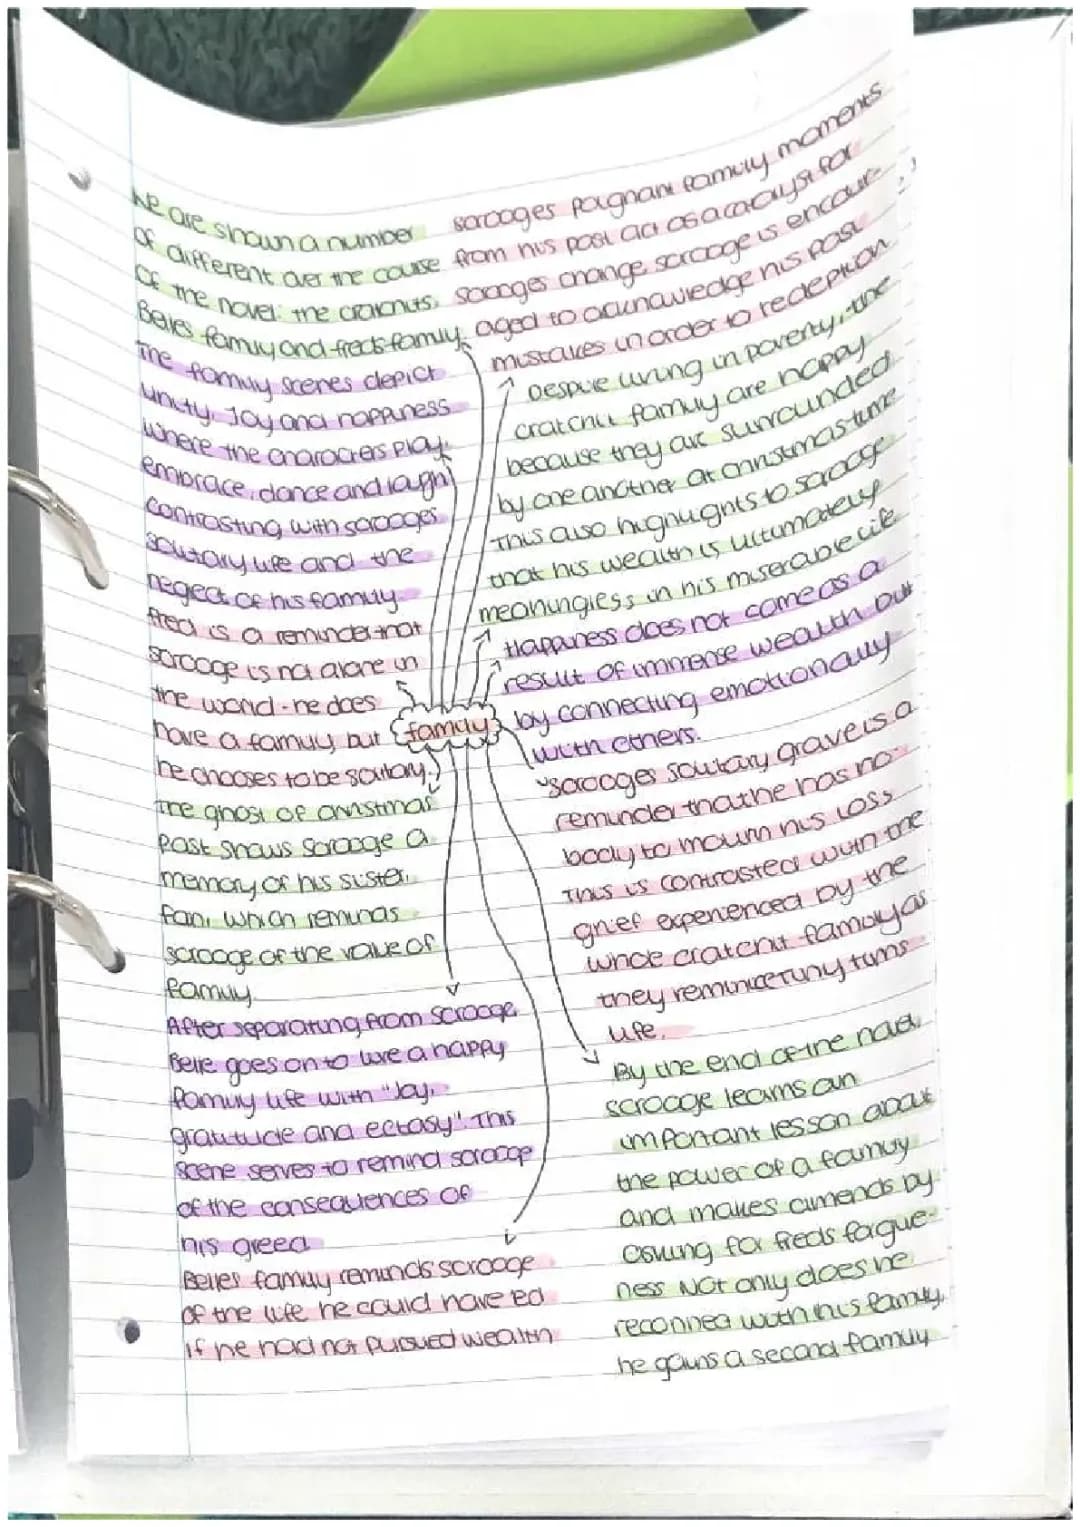 we are shown a number
of different over the course
of the novel: the cratchits,
Belles family and freds family.
The family scenes depict
unity, Joy and happiness
where the characters play,
embrace, dance and laugh
contrasting with scrooges
solitary life and the
neglect of his family
fred is a reminder that
scrooge is not alone in
the world - he does
have a family but
he chooses to be solitary.
The ghost of christmas
past shows scrooge a
memory of his sister,
fan, which reminds
scrooge of the value of
family.
After separating from scrooge,
Belle goes on to live a happy
family life with "Joy,
gratitude and ectasy". This
scene serves to remind scrooge
of the consequences of
his greed
Belles family reminds scrooge
of the life he could have ed
if he had not pursued wealth
family
scrooges poignant family moments
from his past act as a catalyst for
scrooges change, scrooge is encour-
aged to acknowledge his past
mistakes in order to redeption
Despite living in poverty, the
cratchit family are happy
because they are surrounded
by one another at christmas-time
This also highlights to scrooge
that his wealth is ultimately
meaningless in his miserable life
Happiness does not come as a
result of immense wealth but
by connecting emotionally
with others.
scrooges solitary grave is a
reminder that he has no-
body to mourn his loss
This is contrasted with the
grief experienced by the
whole cratchit family as
they reminice tiny tims
life.
By the end of the novel,
scrooge learns an
important lesson about
the power of a family
and makes amends by
asking for freds forgive-
ness Not only does he
reconnect with his family,
he gains a second family